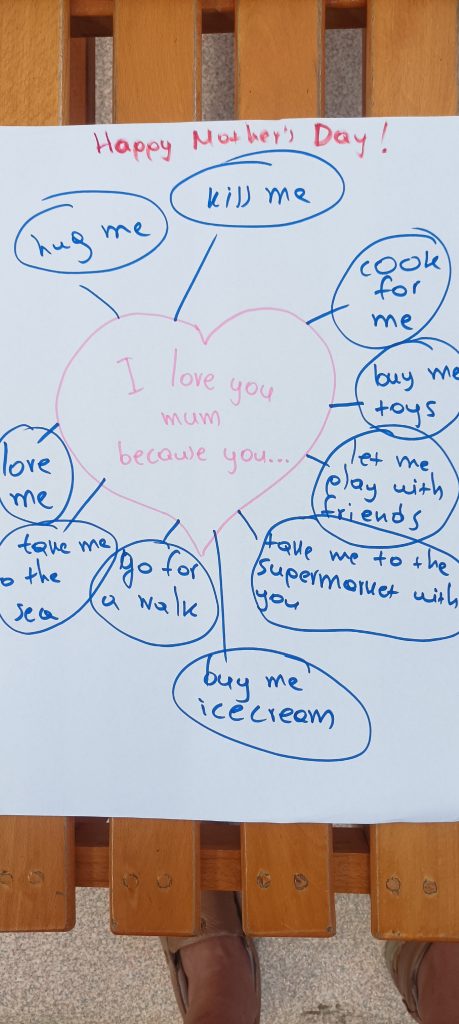 Happy Mother's Day!
hug me
kiss me
cook
for
me
I love you
mum
because you...
buy me
toys
love
me
let me
play with
friends
take me
o the
sea
go for
a walk
take me to the
supermarket with
you
buy me
icecream